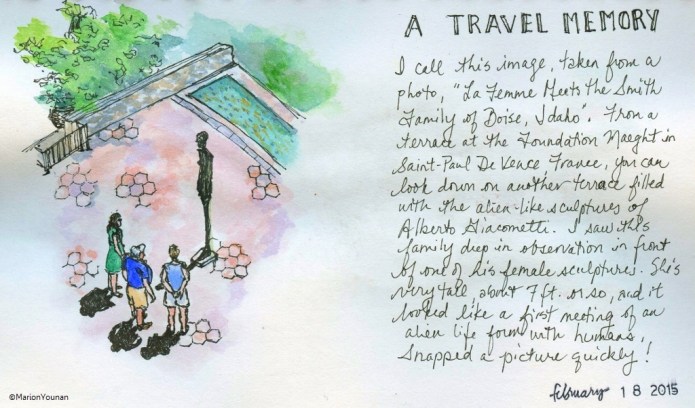 A TRAVEL MEMORY
I call this image, taken from a
photo, "La Femme Meets the Smith
Family of Boise, Idaho". From a
terrace at the Foundation Maeght in
Saint-Paul De Vence France, you can
look down on another terrace filled
with the alien-like sculptures of
Alberto Giacometti. I saw this
family deep in observation in front
of one of his female sculptures. She's
very tall, about 7 ft. or so, and it
looked like a first meeting of an
alien life form with humans.
Snapped a picture quickly!
february 18 2015
©MarionYounan